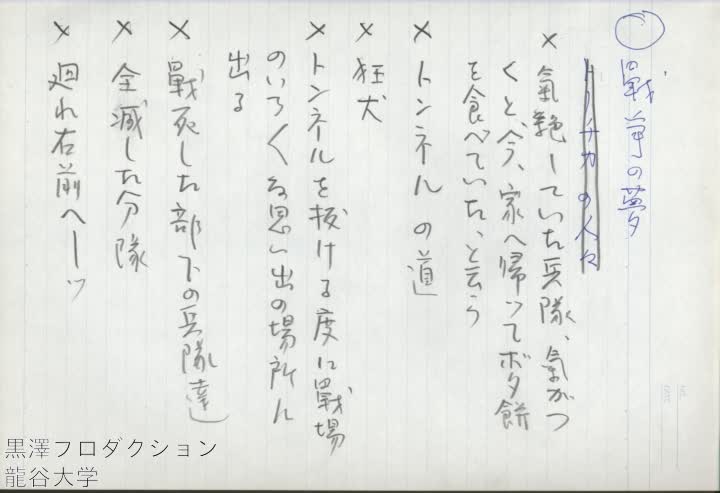 戰爭の夢
トーチカの人々
× 氣絶していた兵隊、氣がつ
くと、今、家へ帰ってボタ餅
を食べていた、と云う
× トンネルの道
× 狂犬
× トンネルを抜ける度に戰場
のいろ〱な思い出の場所に
出る
× 戰死した部下の兵隊達
× 全滅した分隊
× 廻れ右前へーッ
黒澤プロダクション
龍谷大学